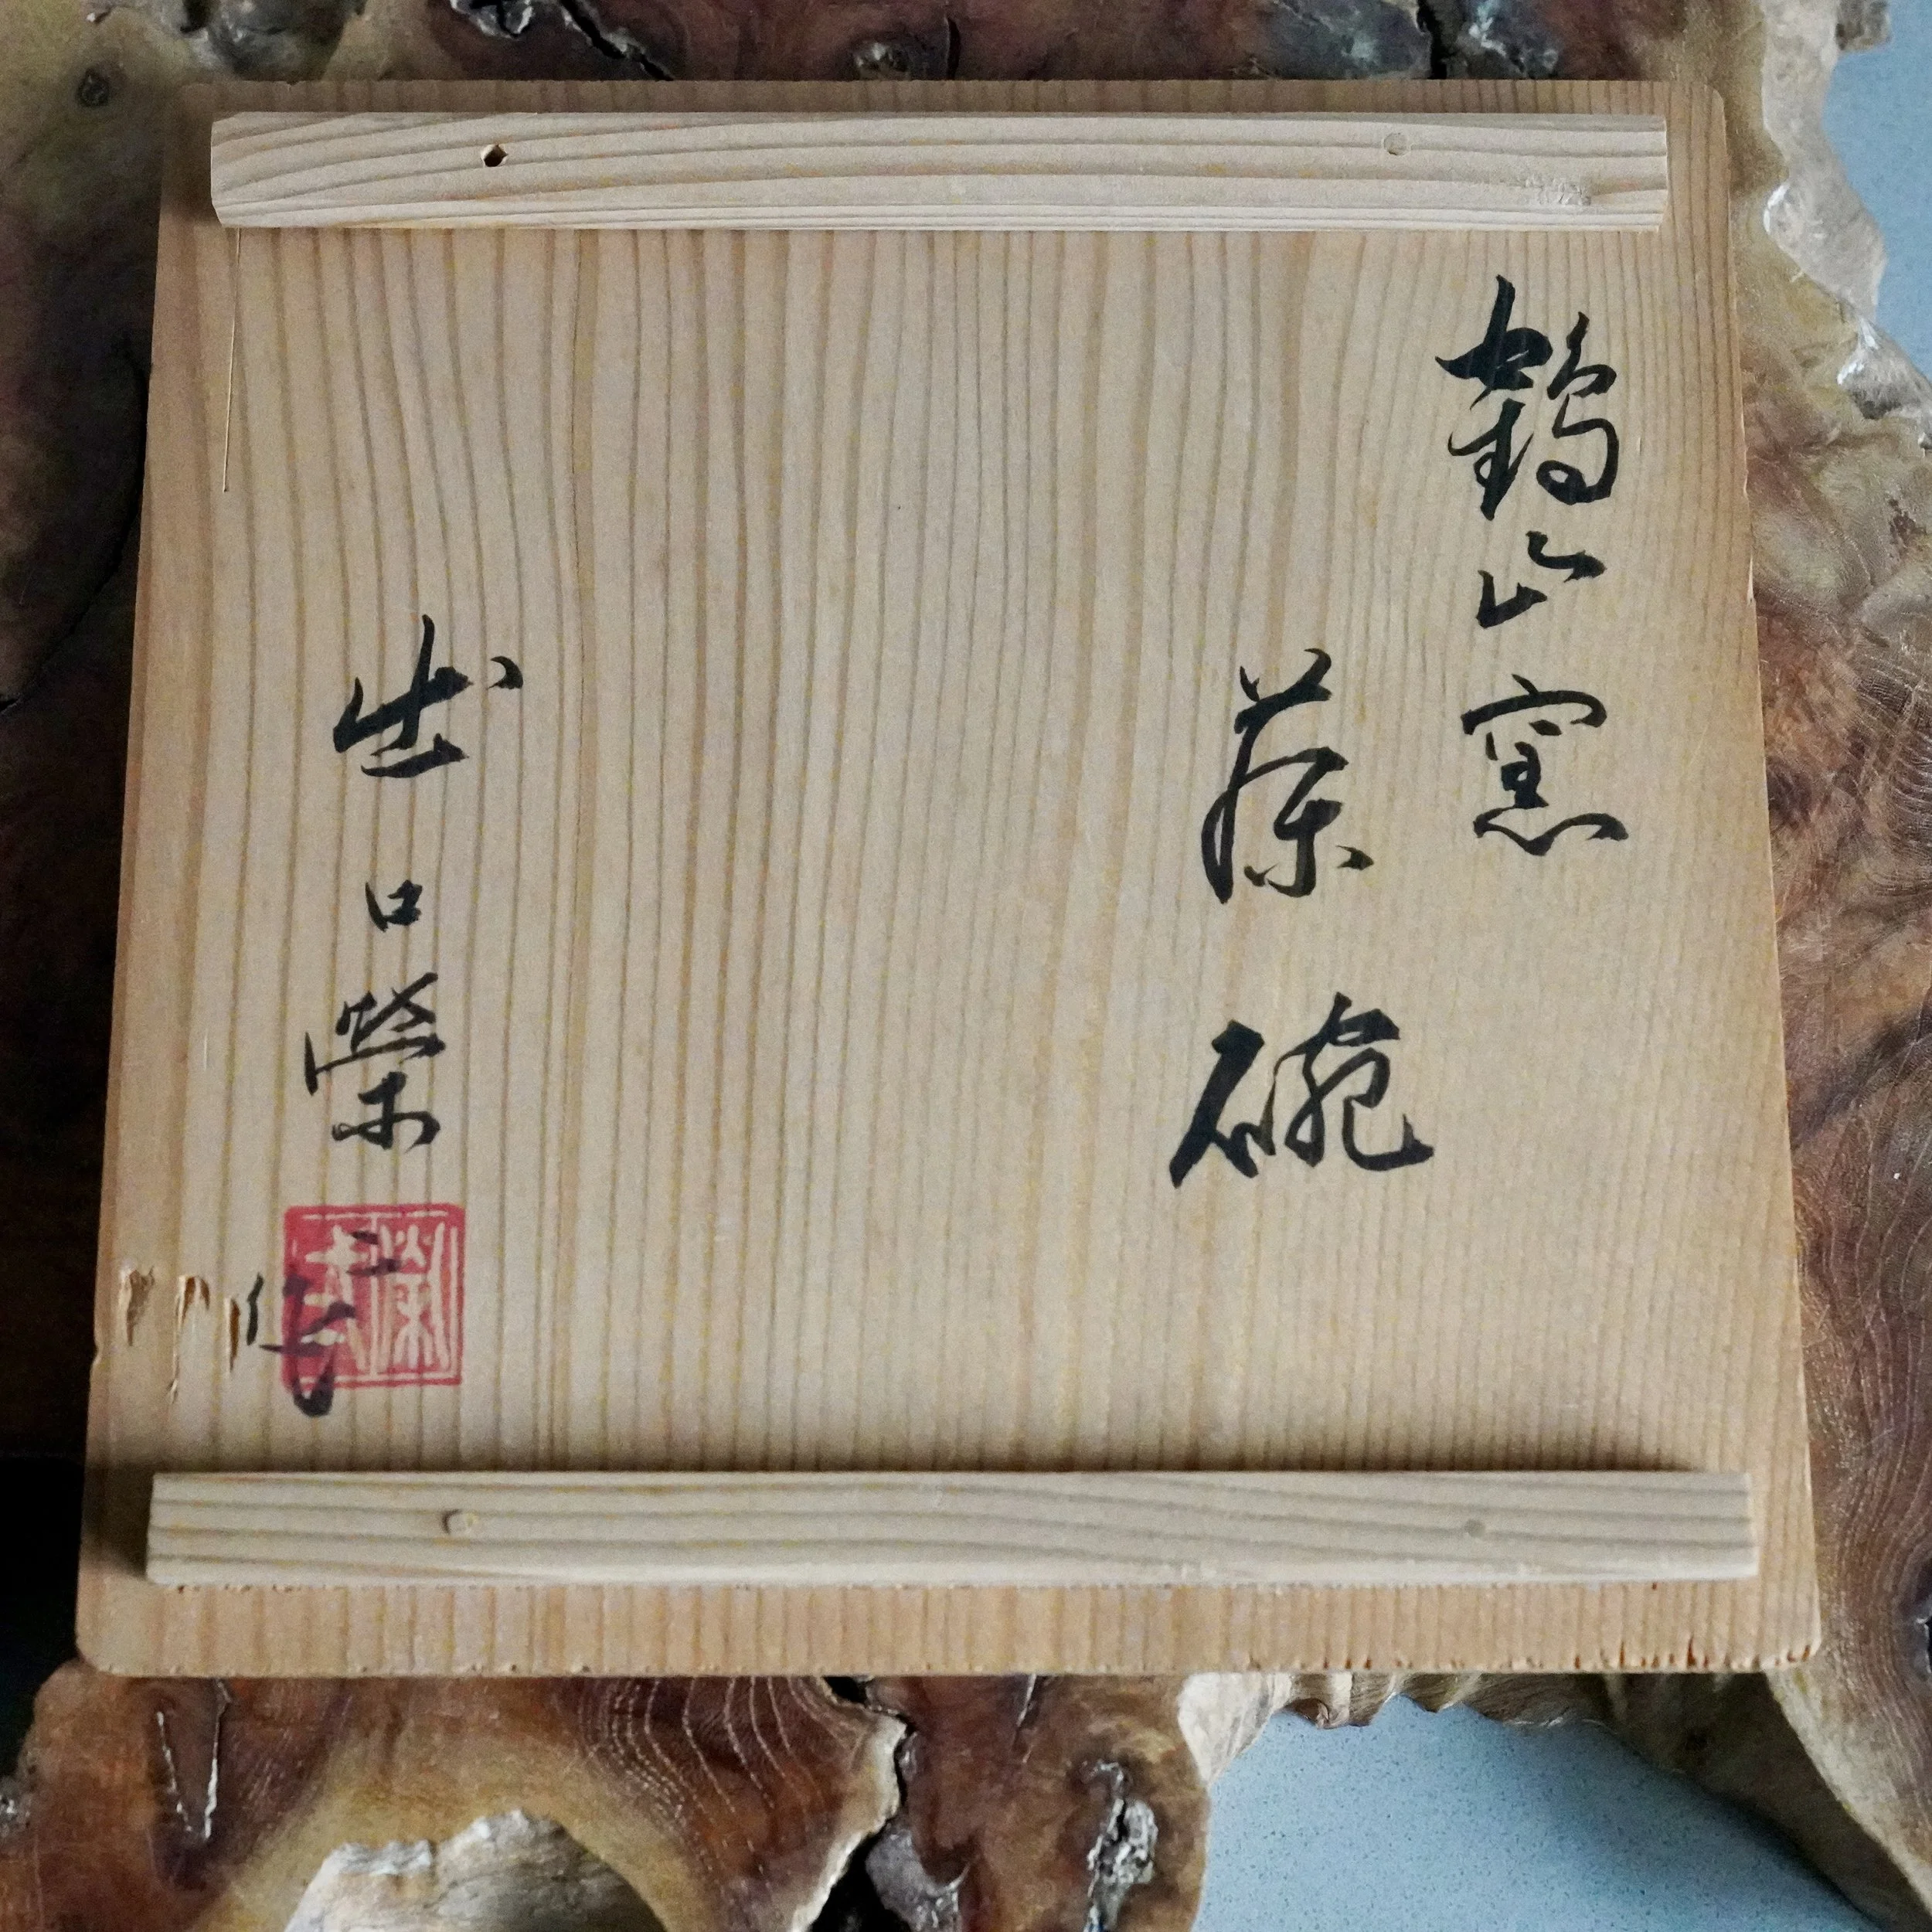 鶴山窯
茶碗
出口榮二
作
榮